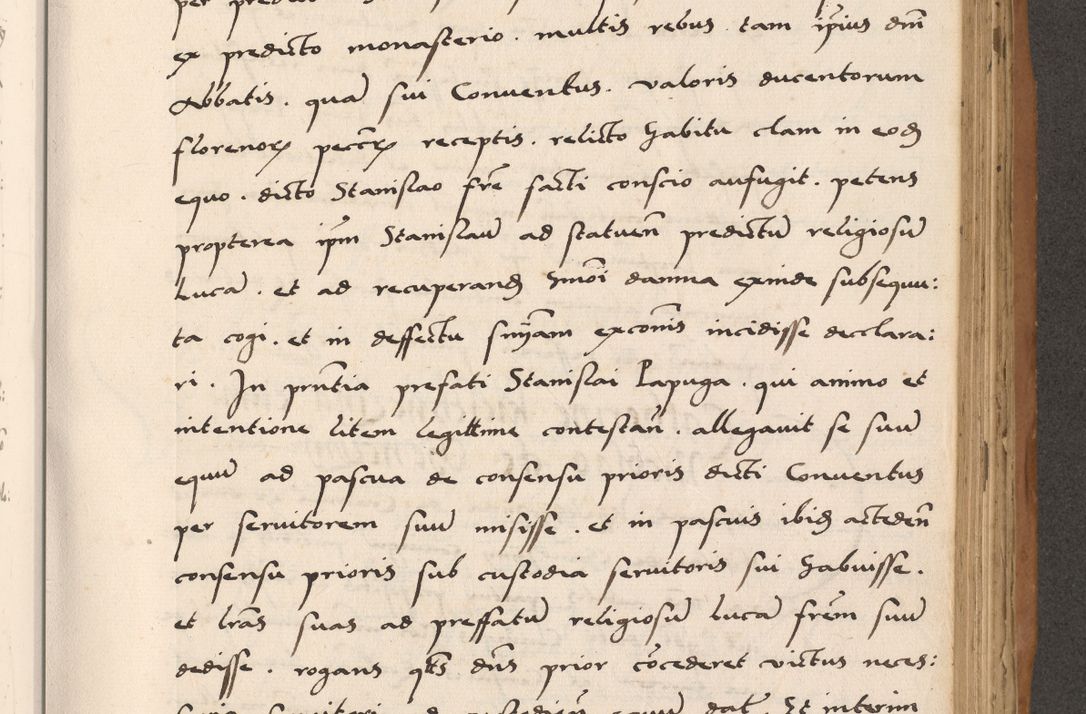 ex predicto monasterio . multis rebus tam ip̄ius dn̄i
Abbatis . quā sui Conventus . valoris ducentorum
florenoꝝ pecc̄ꝝ receptis . relicto habitu clam in eodꝫ
equo . dicto Stanislao fr̄e facti conscio aufugit . petens
propterea ip̄m Stanislaū ad statuen̄ predictū religiosū
Lucā . et ad recuperandꝫ hm̄oi damna exinde subsequu:
ta cogi . et in deffectu sn̄iam excoīs incidisse decclara:
ri . In pn̄tia prefati Stanislai Lapuga . qui animo et
intentione litem legittime contestan̄ . allegavit se suū
equū ad pascua de consensu prioris dicti Conventus
per servitorem suū misisse . et in pascuis ibidꝫ acteden̄
consensu prioris sub custodia servitoris sui habuisse .
et lr̄as suas ad preffatū religiosū Lucā frēm suū
dedisse . rogans qt̄s dn̄s prior cōcederet victus neces: